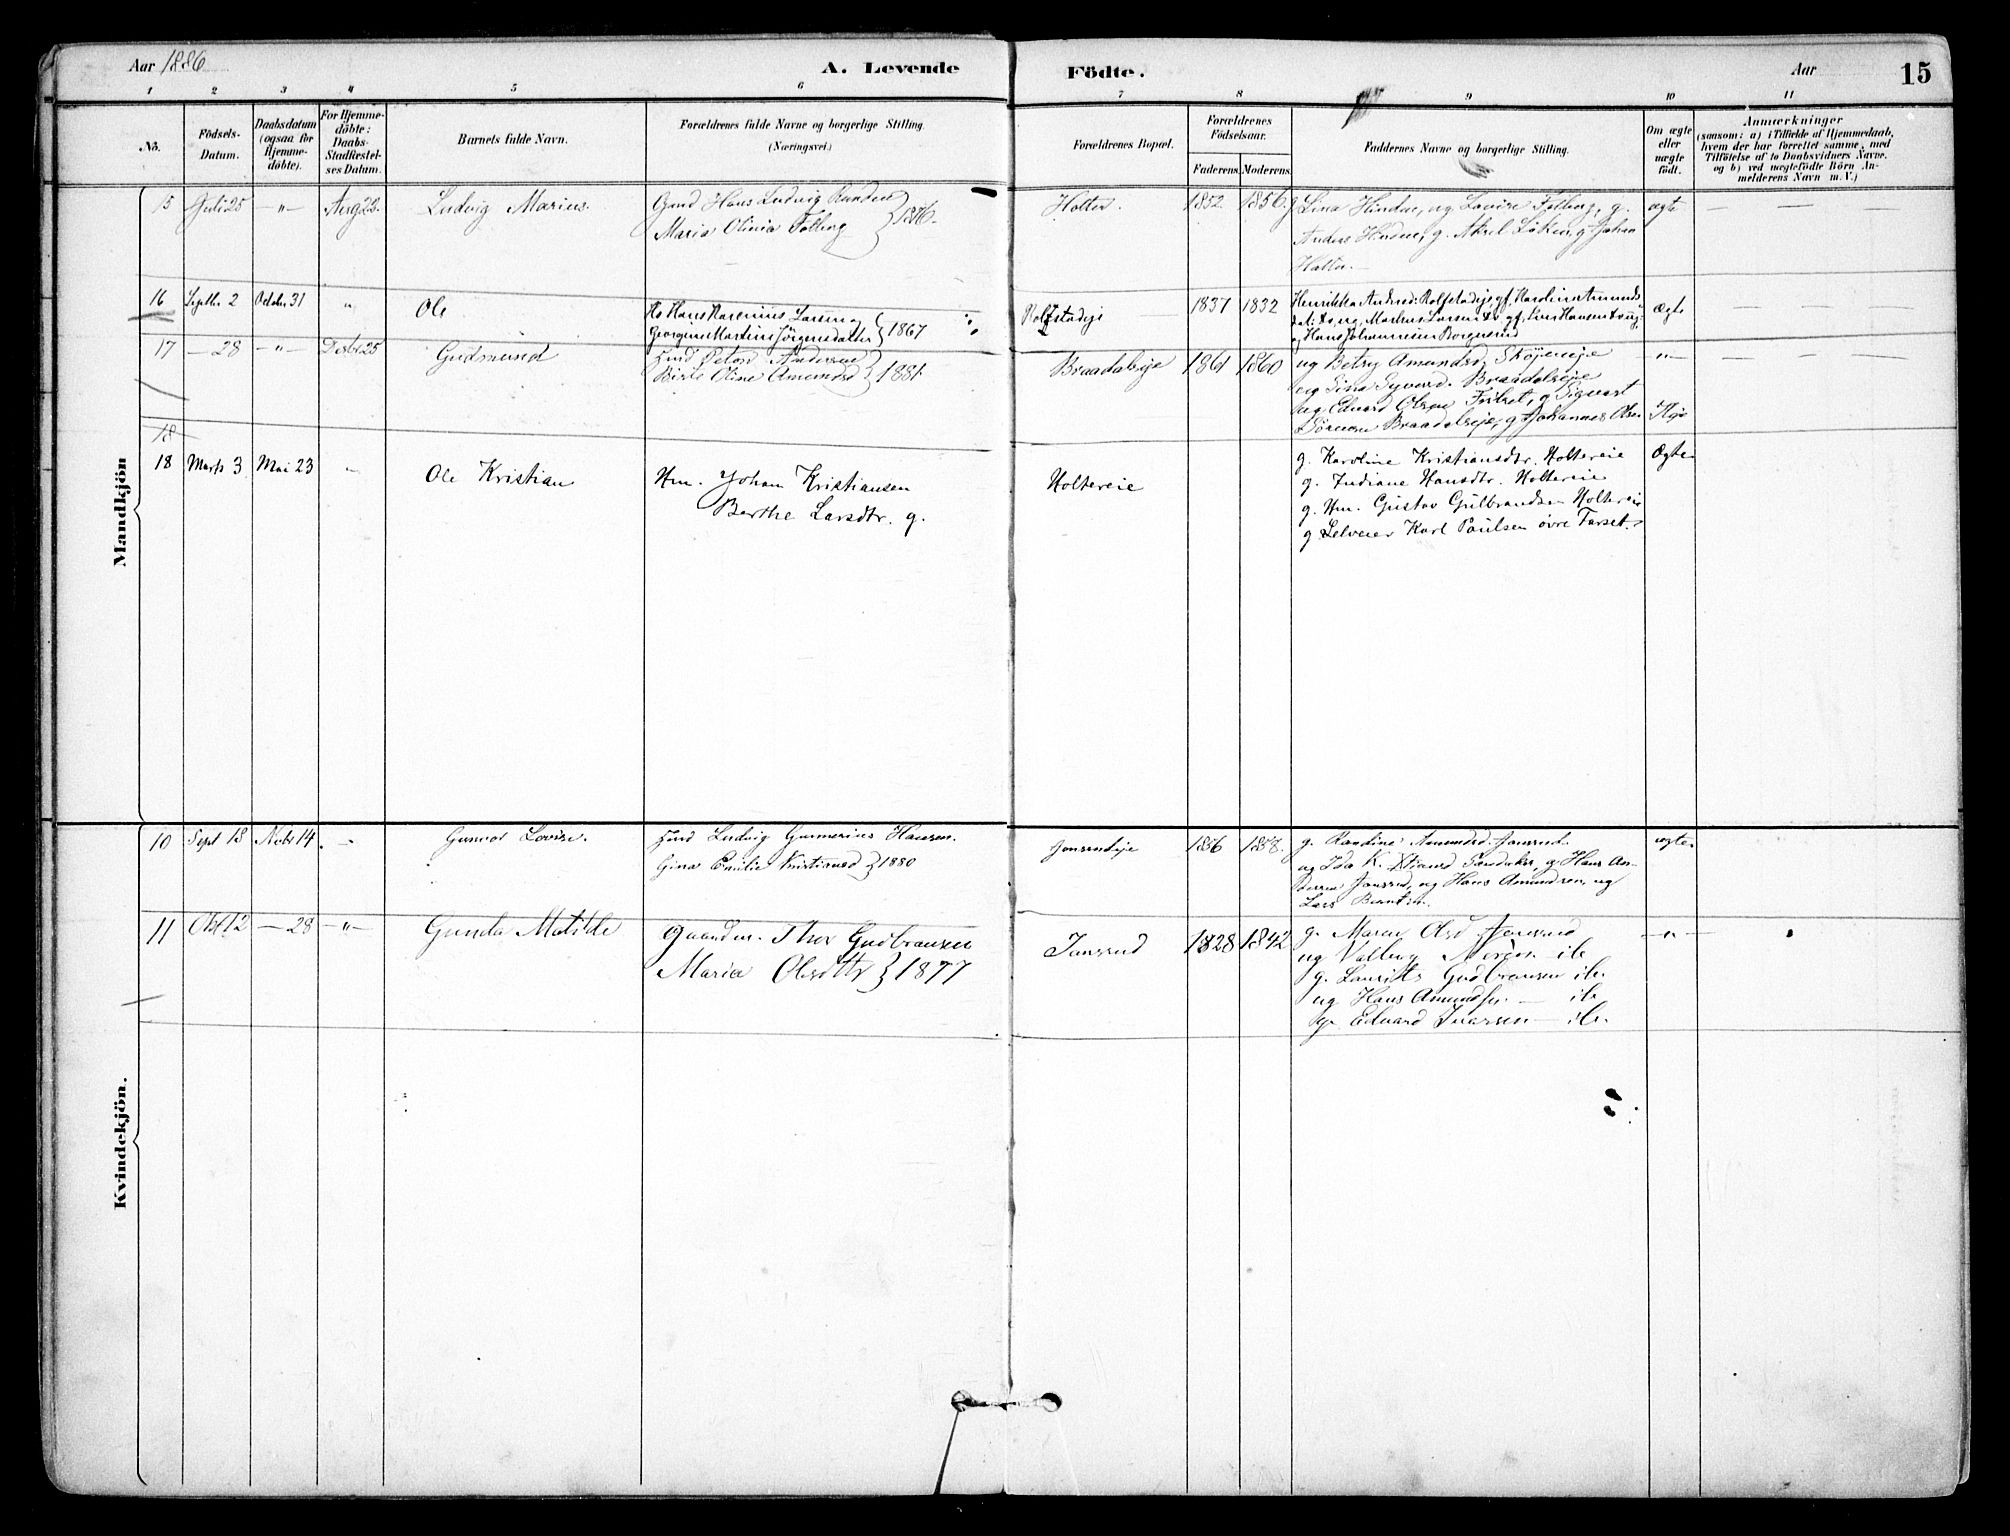 Aar 1886
A. Levende
Födte.
Aar
15
1 2 3 4 5 6 7 8 9 10 11
No.
Födsels-
Datum.
Daabsdatum
(ogsaa for
Hjemme-
döbte).
For Hjemme-
döbte:
Daabs-
Stadfæstel-
ses Datum.
Barnets fulde Navn.
Forældrenes fulde Navne og borgerlige Stilling.
(Næringsvei.)
Forældrenes Bopæl.
Forældrenes
Födselsaar.
Faderens. Moderens.
Faddernes Navne og borgerlige Stilling.
Om ægte
eller
uægte
födt.
Anmærkninger
(saasom: a) i Tilfælde af Hjemmedaab,
hvem der har forrettet samme, med
Tilföielse af to Daabsvidners Navne,
og b) ved uægtefödte Börn An-
melderens Navn m. V.)
Mandkjön
15 Juli 25 — " — Aug 22. Ludvig Marius.
Gmd Hans Ludvig
Maria Olinia Fölling } 1876.
Holter. 1852 1856
g. Lina Hindne, ug Lovise Fölling, g.
Anders Hindne, g. Aksel Löken, g. Johan
Holter.
ægte — — —
16 Septbr 2 Octobr 31 " Ole
Hans Larsen og
Georgine Martine Jörgensdatter } 1867
Rolfstadeje 1837 1832
Henrikka Andrsd: Rolfstadeje, gf. Karoline Amunds
dat: og Markus Larsen gf,
og Hans Johannesen Borgensrud
Ægte — — —
17 — 28 — " — Dcbr 25 Gudmund
Hmd Peter Andersen
Birte Oline Amundsd } 1881.
Braadaleje 1861 1860
ug Betsy Amundsd, Sköjeneje
ug Gina Syversd. Braadaleje
ug Edvard Olsen, g Sigvart
Sörensen Braadaleje, g Johannes Olsen
— " — — — —
18
18 Marts 3 Mai 23 — Ole Kristian
Hm. Johan Kristiansen
Berthe Larsdtr. g.
Holtereie
g. Karoline Kristiansdtr. Holtereie
g. Indiane Hansdtr. Holtereie
g. Hm. Gustav Gulbrandsen Holtereie
g. Selveier Karl Paulsen övre Farset.
Ægte
Kvindekjön.
10 Sept 18 Novbr 14 — Gunvor Lovise.
Hmd Ludvig Gunnerius Hansen.
Gina Emilie Kristiansd } 1880
Jonsrudeje 1856 1858.
g. Randine Amundsd. Jonsrud
og Ida K. Sandaker, g Hans An-
dersen Jonsrud, ug Hans Amundsen, ug
Lars Berntsen.
ægte
11 Okt 12 — 28 — " — Gunda Matilde
Gaardm. Thor Gudbransen
Maria Olsdtr } 1877
Jonsrud 1828 1842
g. Maren Olsd Jonsrud
ug Valborg ib
g. Laurits Gudbransen ib.
ug Hans Amundsen — ib
ug Edvard Ivarsen — ib.
— " —